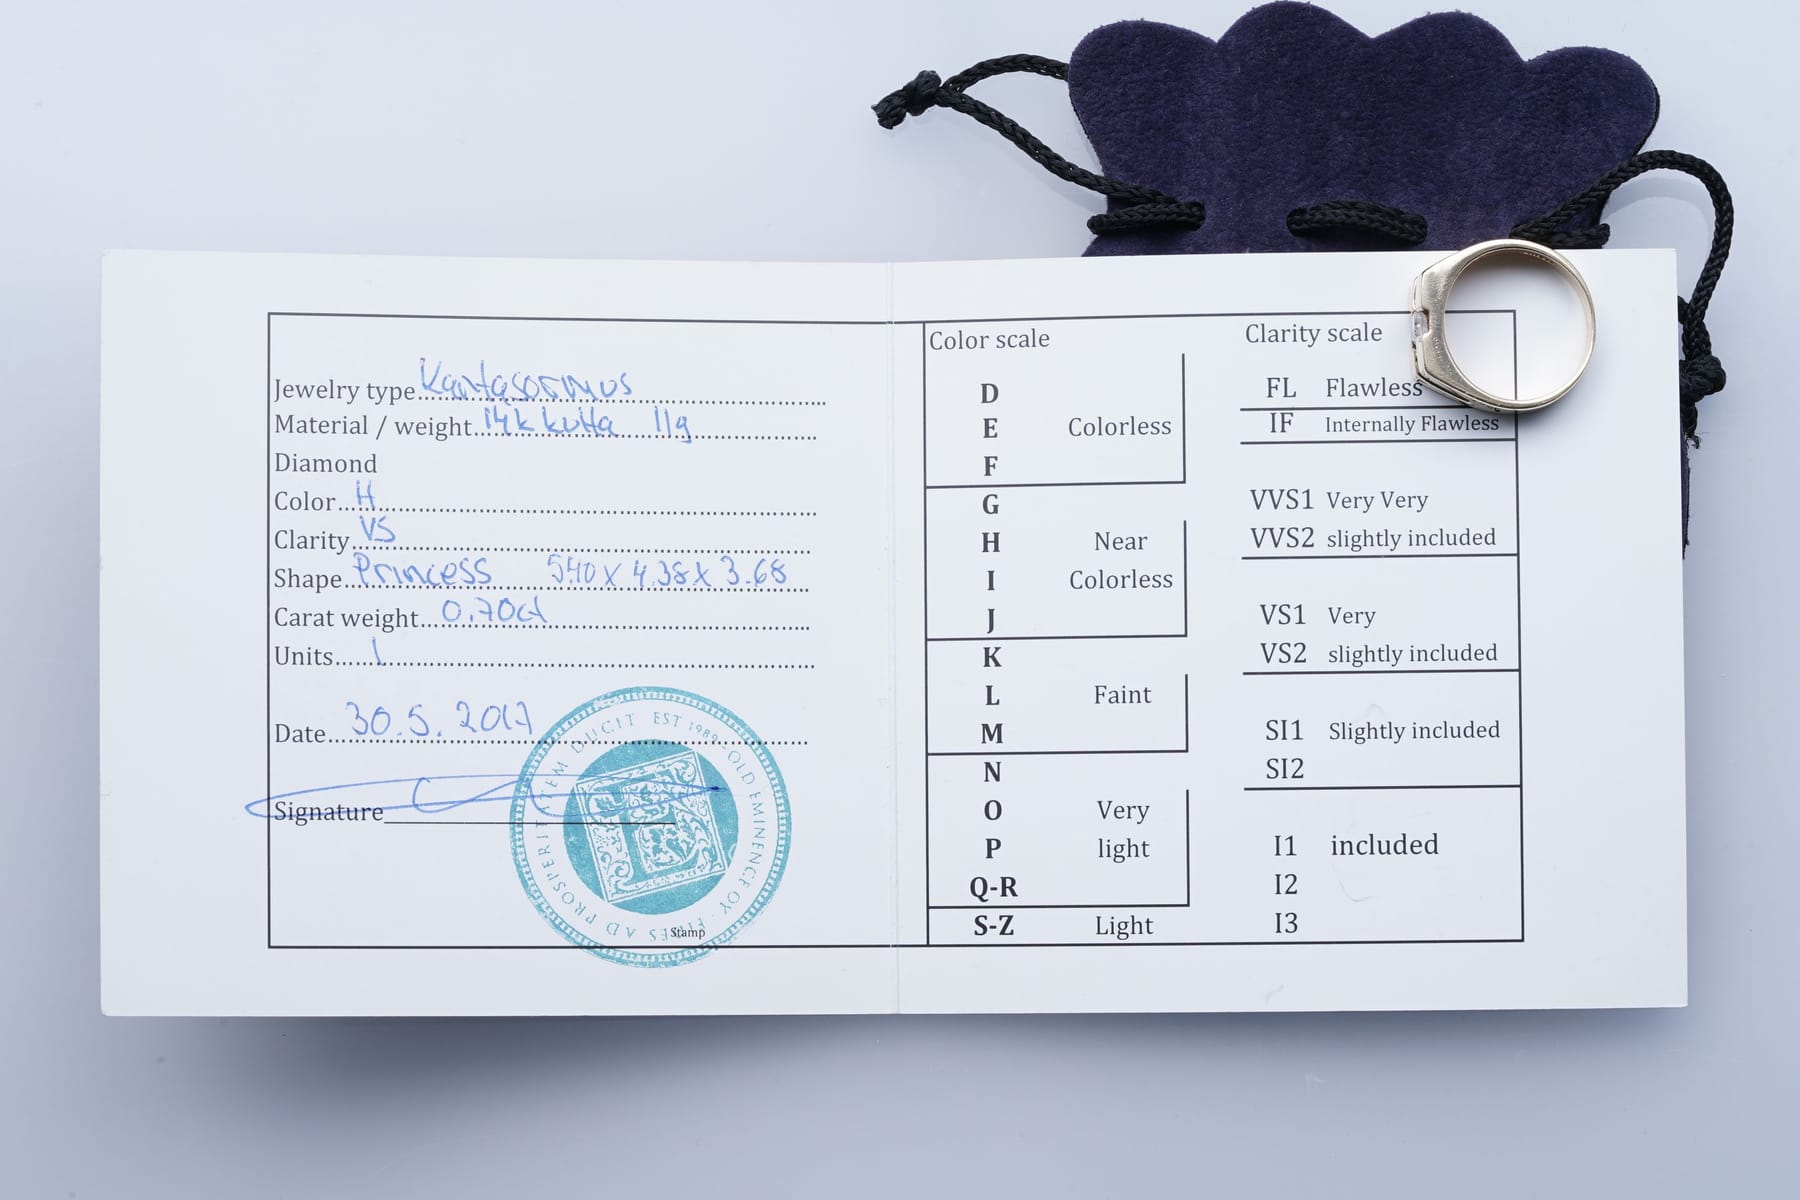 Jewelry type Kantasormus
Material / weight 14k kulta 11g
Diamond
Color H
Clarity VS
Shape Princess 5.40 x 4.38 x 3.68
Carat weight 0.70ct
Units 1
Date 30.5.2017
Signature
Stamp
PROSPERITATEM DUCIT EST 1989 - OLD EMINENCE OY · FIDES AD
Color scale
D
E Colorless
F
G
H Near
I Colorless
J
K
L Faint
M
N
O Very
P light
Q-R
S-Z Light
Clarity scale
FL Flawless
IF Internally Flawless
VVS1 Very Very
VVS2 slightly included
VS1 Very
VS2 slightly included
SI1 Slightly included
SI2
I1 included
I2
I3